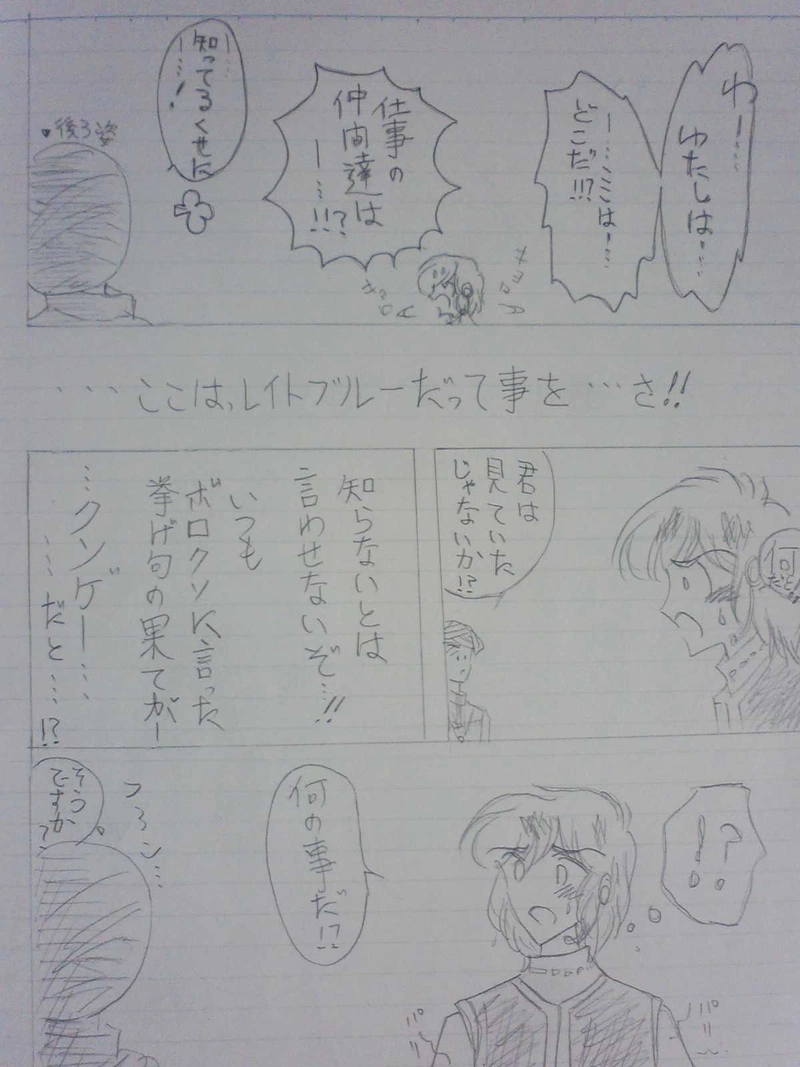 わー……
わたしは…‥
ー……ここは…‥
どこだ!!?
仕事の
仲間達は
ー…‥!!?
ー……
知ってるくせに
ー……!
後ろ姿
……ここは、レイトブルーだって事を…さ!!
何
だと!
君は
見ていた
じゃないか!?
知らないとは
言わせないぞ…!!
いつも
ボロクソに言った
挙げ句の果てがー
…クソゲー……
……だと……!?
!?
何の事だ!?
そう
ですか